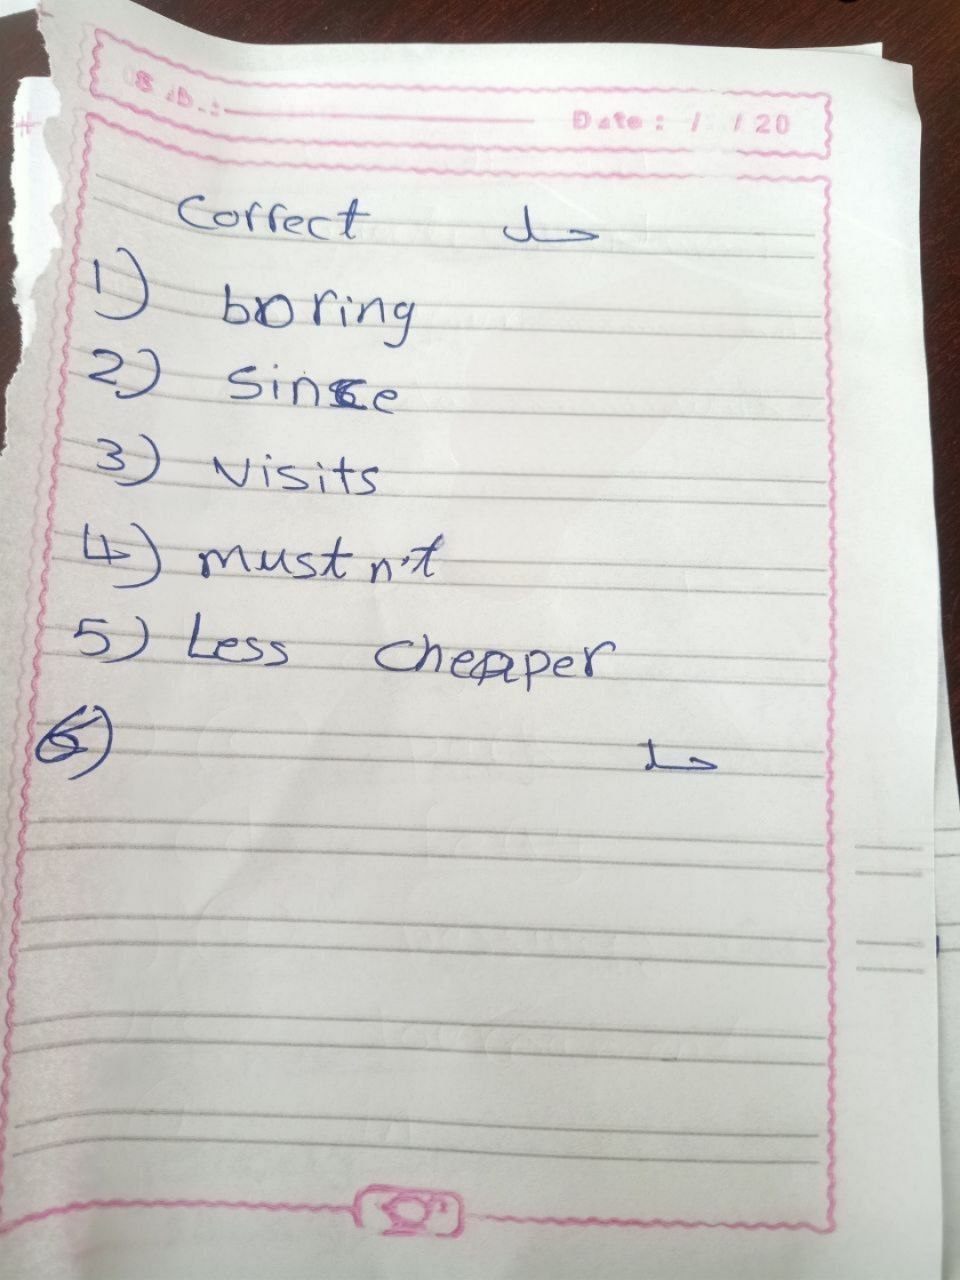 S.b.: Date: / / 20
Correct حل
1) boring
2) since
3) visits
4) mustn't
5) Less cheaper
6) حل